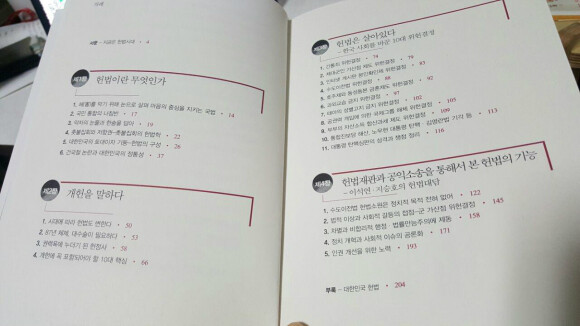 차례
서문 - 지금은 헌법시대 • 4
제1장
헌법이란 무엇인가
1. 제왕을 막기 위해 눈으로 삶과 마음의 중심을 지키는 국법 • 14
2. 국민 통합의 나침반 • 17
3. 약자의 눈물과 한숨을 닦아 • 19
4. 촛불집회와 저항권 - 촛불집회의 헌법학 • 22
5. 대한민국의 포데이터 기틀 - 헌법의 구성 • 26
6. 건국절 논란과 대한민국의 정통성 • 37
제2장
개헌을 말하다
1. 시대에 따라 헌법도 변한다 • 50
2. 87년 체제, 대수술이 필요하다 • 53
3. 권력욕에 누더기 된 헌정사 • 58
4. 개헌에 꼭 포함되어야 할 10대 핵심 • 66
제3장
헌법은 살아있다
- 한국 사회를 바꾼 10대 위헌결정
1. 간통죄 위헌결정 • 74
2. 제대군인 가산점 제도 위헌결정 • 79
3. 인터넷 게시판 본인확인제 위헌결정 • 83
4. 수도이전법 위헌결정 • 86
5. 호주제와 동성동본 금혼제 위헌결정 • 89
6. 과외교습 금지 위헌결정 • 97
7. 태아의 성별고지 금지 위헌결정 • 102
8. 공권력 개입에 의한 국제그룹 해체, 위헌결정 • 105
9. 부부의 자산소득 합산과세 제도 위헌결정 • 109
10. 통합진보당 해산, 노무현 대통령 탄핵, 김영란법 기각 등 • 113
11. 대통령 탄핵심판의 성격과 쟁점 정리
제4장
헌법재판과 공익소송을 통해서 본 헌법의 기능
- 이석연 · 지승호의 헌법대담
1. 수도이전법 헌법소원은 정치적 목적 전혀 없어 • 122
2. 법적 이상과 사회적 갈등의 접점 - 군 가산점 위헌결정 • 145
3. 차별과 비합리적 행정 · 법률만능주의에 제동 • 158
4. 정치 개혁과 사회적 이슈의 공론화 • 171
5. 인권 개선을 위한 노력 • 193
부록 - 대한민국 헌법 • 204